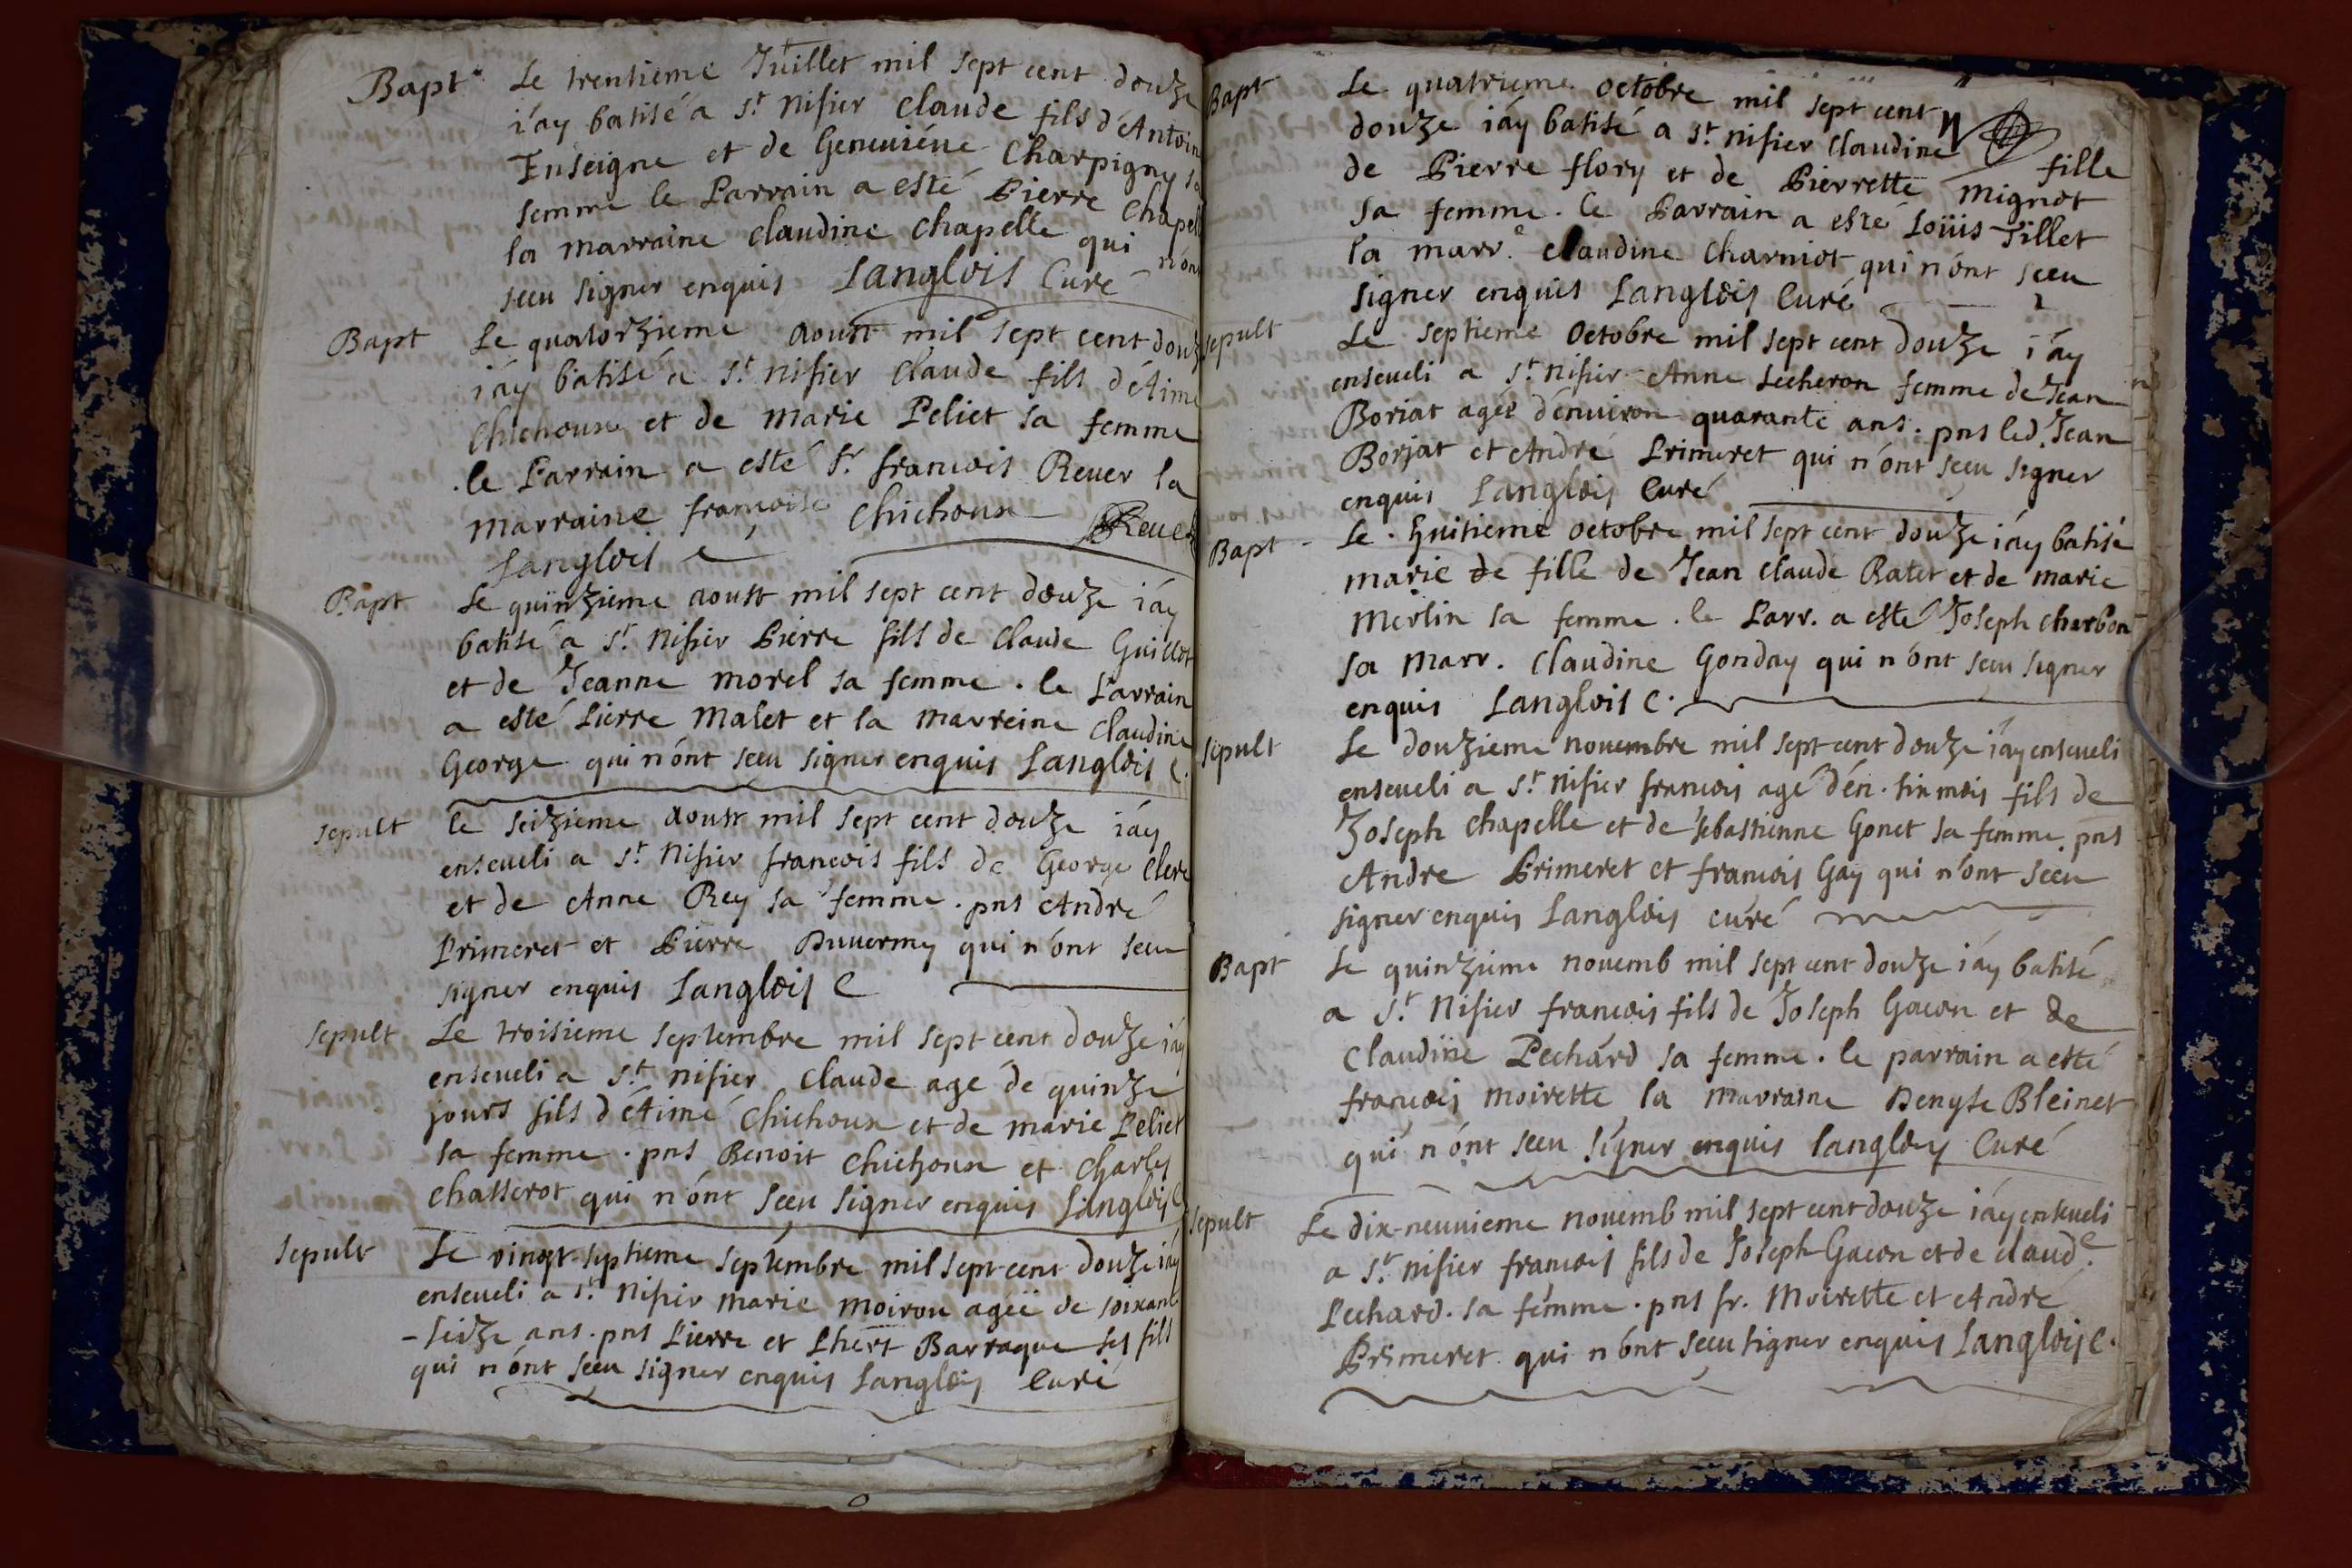 Bapt. Le trentieme Juillet mil sept cent douze
i'ay batisé a St. nisier claude fils d'Antoin
Enseigne et de Geneuiéue Charpigny sa
femme le Parrain a esté Pierre Chapell
la marraine claudine chapelle qui n'ont
sceu signer enquis Langlois Curé
Bapt Le quatorzieme aoust mil sept cent douz
i'ay batisé a St. nisier claude fils d'Aimé
Chichoux et de marie Peliet sa femme
.le Parrain a esté Sr. francois Reuer la
marraine francoise Chichoux Reuer
Langlois C
Bapt Le quinzieme aoust mil sept cent douze i'ay
batisé a St. nisier Pierre fils de claude Guillot
et de Jeanne morel sa femme . le Parrain
a esté Pierre malet et la marreine claudine
George qui n'ont sceu signer enquis Langlois C.
sepult le seizieme aoust mil sept cent douze i'ay
enseueli a St. Nisier francois fils de George Clerc
et de Anne Rey sa femme . pns André
Primeret et Pierre Duuerney qui n'ont sceu
signer enquis Langlois C
sepult Le troisieme septembre mil sept cent douze i'ay
enseueli a St. nisier claude age de quinze
jours fils d'Aimé Chichoux et de marie Peliet
sa femme . pns Benoit Chichoux et Charles
chasserot qui n'ont sceu signer enquis Langlois C
sepult Le vingt-septieme septembre mil sept cent douze i'ay
enseueli a St. Nisier marie moiroux ageé de soixant
-seize ans . pns Pierre et Phert Barraque ses fils
qui n'ont sceu signer enquis Langlois Curé
Bapt Le quatrieme octobre mil sept cent
douze i'ay batisé a St. nisier claudine fille
de Pierre flory et de Pierrette mignot
sa femme . le Parrain a esté Loüis Tillet
la marr.e claudine charniot qui n'ont sceu
signer enquis Langlois Curé
sepult Le septieme octobre mil sept cent douze i'ay
enseueli a St. nisier Anne Lecheron femme de Jean
Boriat ageé d'enuiron quarante ans . pns led. Jean
Borjat et André Primeret qui n'ont sceu signer
enquis Langlois Curé
Bapt - Le . huitieme octobre mil sept cent douze i'ay batisé
marie de fille de Jean claude Ratet et de marie
merlin sa femme . le Parr. a esté Joseph cherbon
sa marr. claudine Gonday qui n'ont sceu signer
enquis Langlois C.
sepult Le douzieme nouembre mil sept cent douze i'ay enseueli
enseueli a St. nisier francois agé d'en. six mois fils de
Joseph chapelle et de sebastienne Gonet sa femme . pns
Andre Primeret et francois Gay qui n'ont sceu
signer enquis Langlois curé
Bapt Le quinzieme nouemb mil sept cent douze i'ay batisé
a St. Nisier francois fils de Joseph Gacon et de
claudine Pechard sa femme . le parrain a esté
francois moirette la marraine Denyse Bleinet
qui n'ont sceu signer enquis Langlois Curé
sepult Le dix-neuuieme nouemb mil sept cent douze i'ay enseueli
a St. nisier francois fils de Joseph Gacon et de claud.e
Pechard . sa femme . pns fr. Moirette et André
Primeret qui n'ont sceu signer enquis Langlois C.